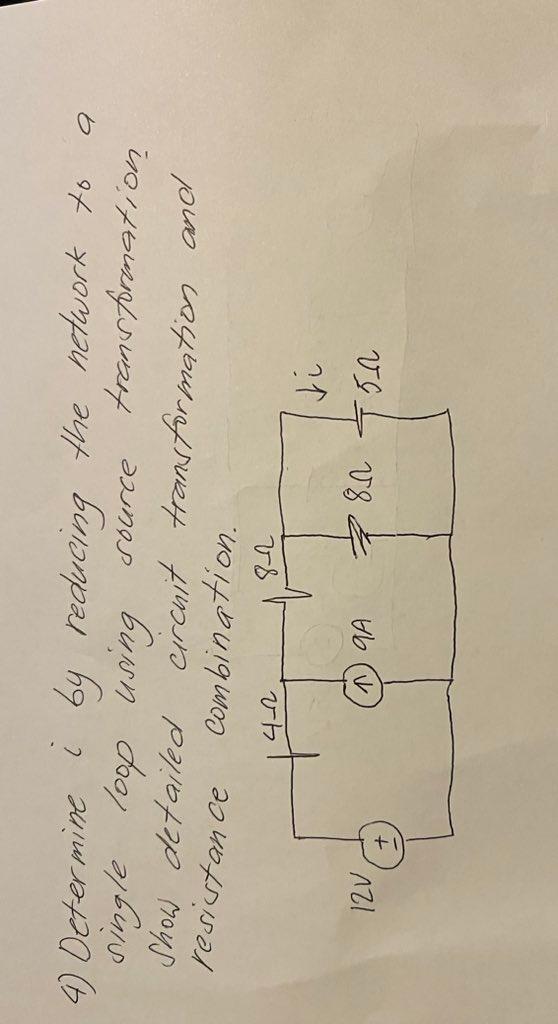 4) Determine i by reducing the network to a
single loop using source transformation.
Show detailed circuit transformation and
resistance combination.
4Ω 8Ω ↓i
12V ± ↑ 9A 8Ω 5Ω